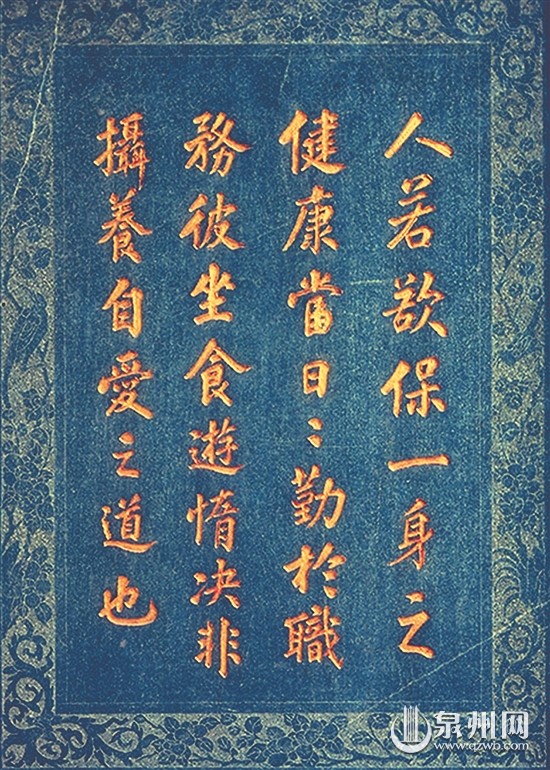 人若欲保一身之
健康當日〻勤於職
務彼坐食遊惰决非
攝養自愛之道也
泉州网
www.qzwb.com